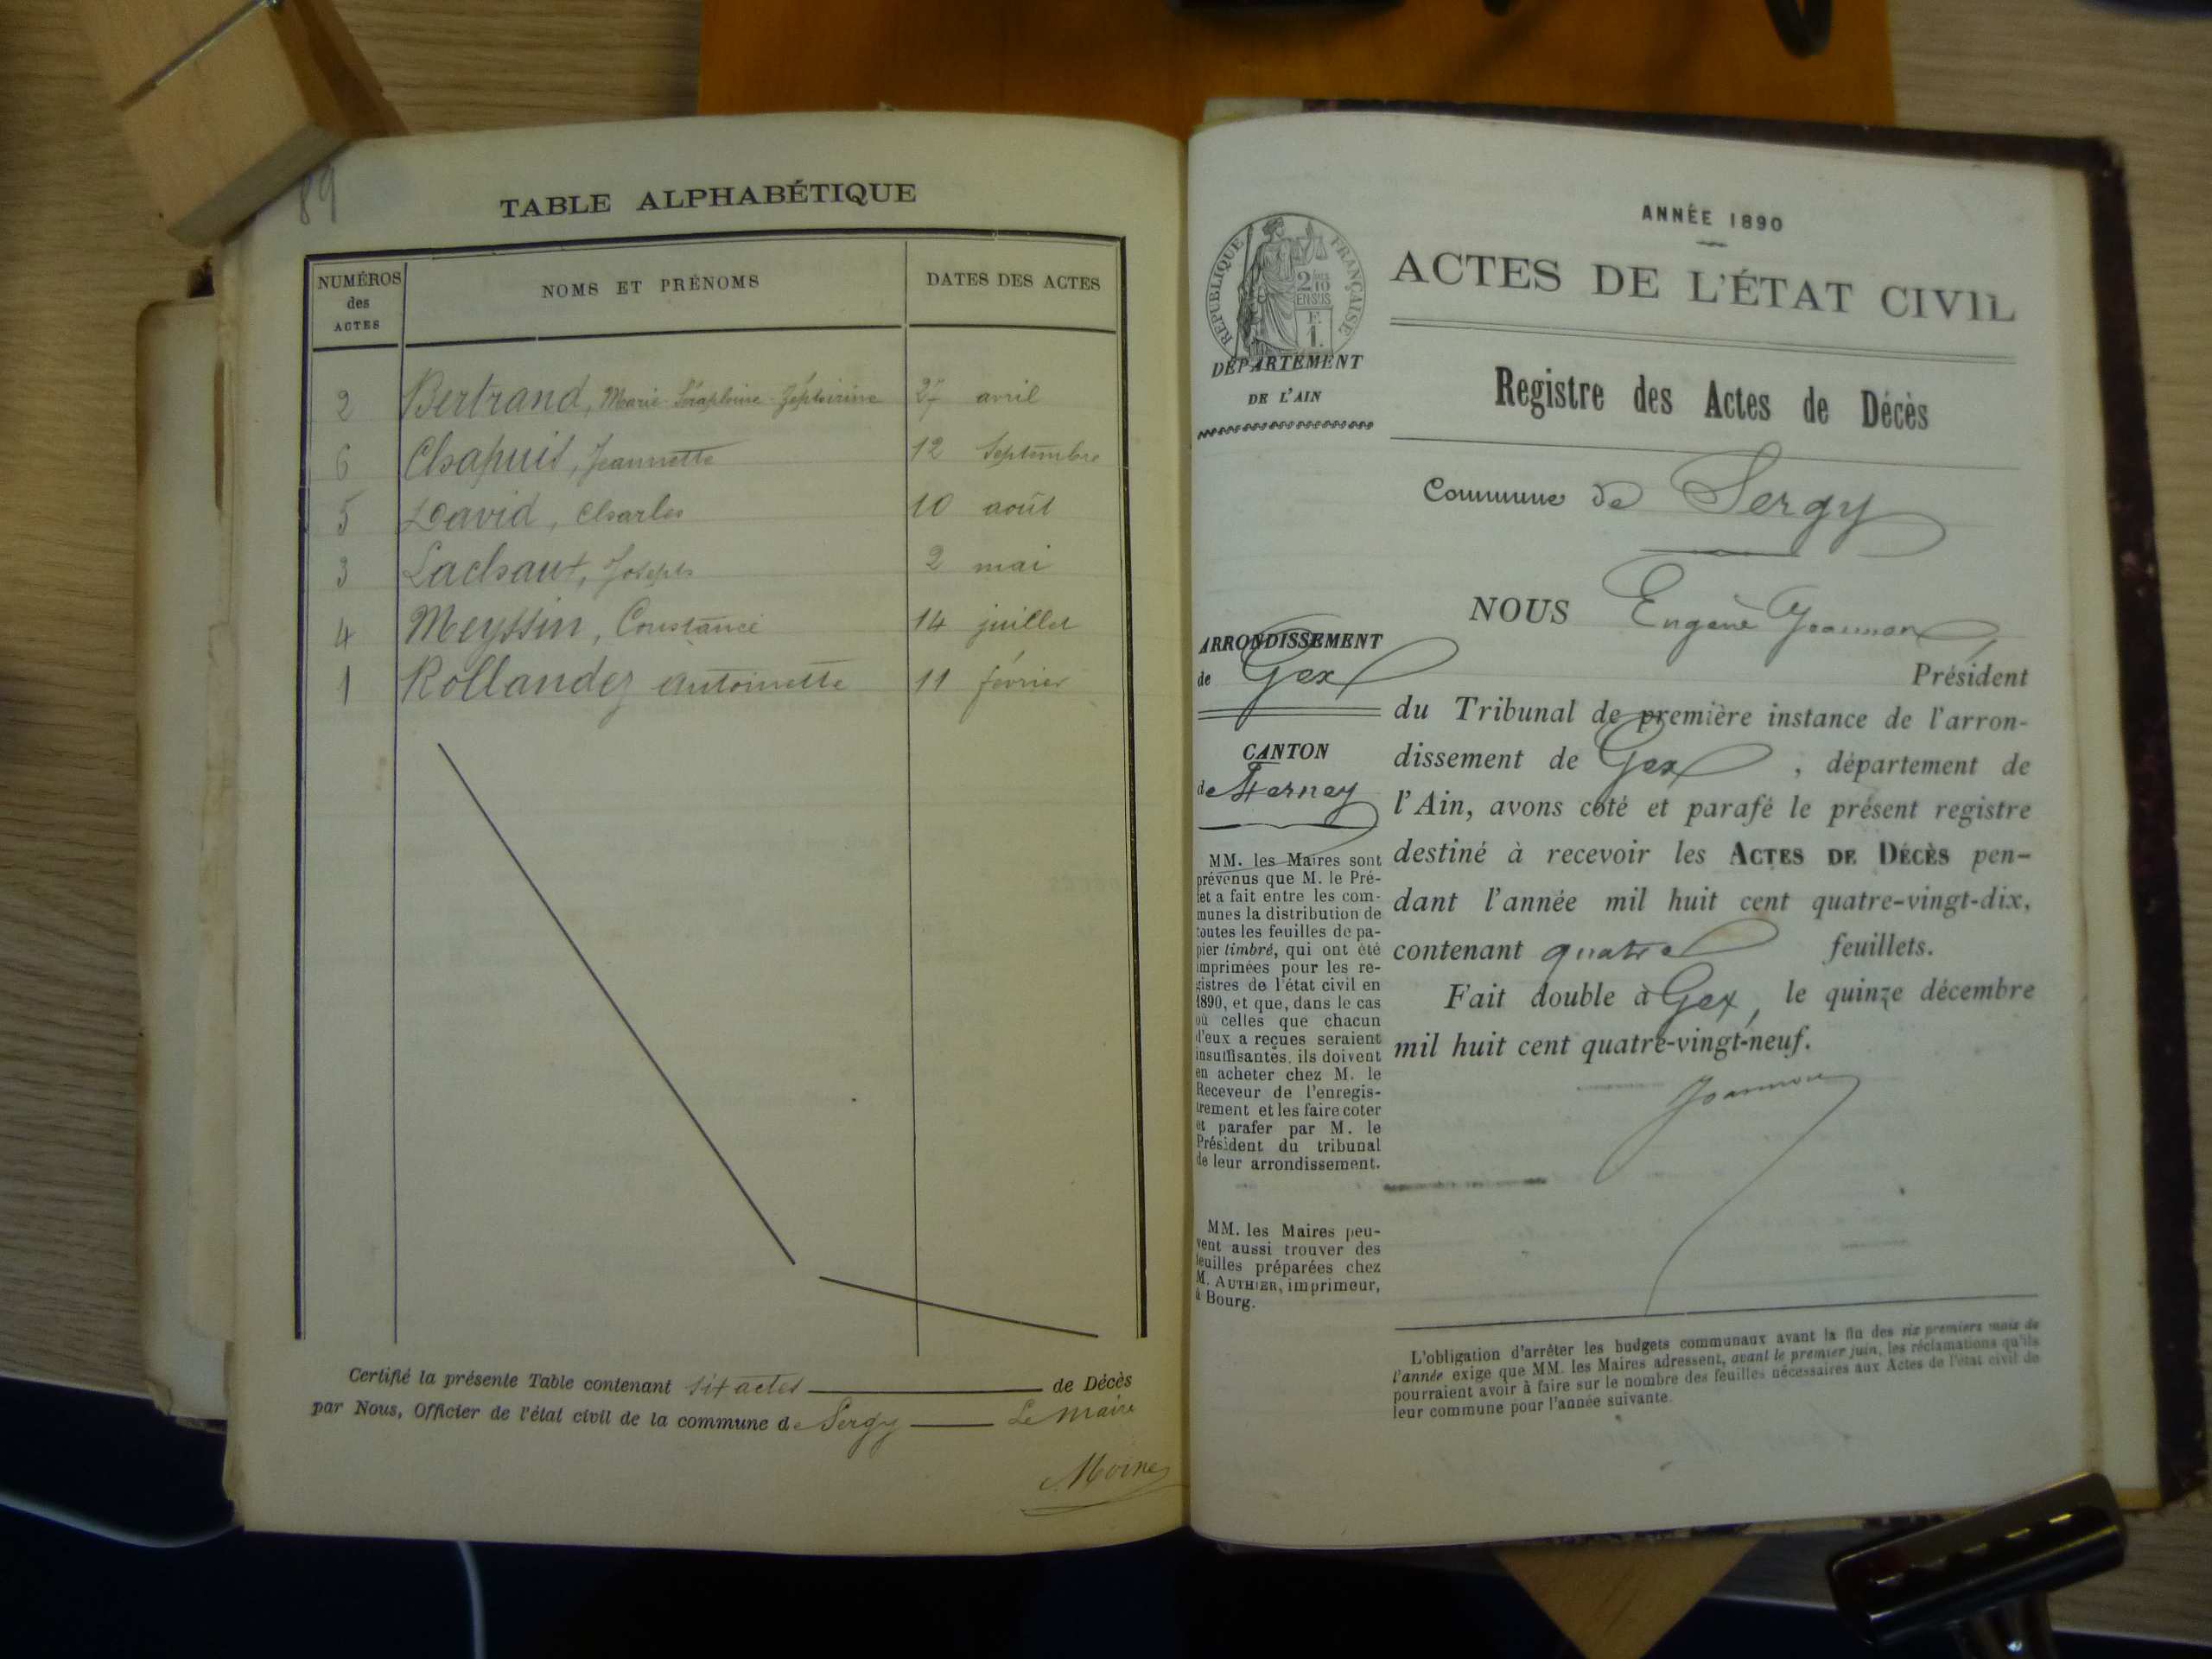 89
TABLE ALPHABÉTIQUE
NUMÉROS des ACTES | NOMS ET PRÉNOMS | DATES DES ACTES
2 Bertrand, Marie Séraphine Zéphirine 27 avril
6 Chapuis, Jeannette 12 Septembre
5 David, Charles 10 août
3 Lachaut, Joseph 2 mai
4 Meyssin, Constance 14 juillet
1 Rollandez Antoinette 11 février
Certifié la présente Table contenant six actes de Décès
par Nous, Officier de l'état civil de la commune de Sergy Le maire
Moine
ANNÉE 1890
ACTES DE L'ÉTAT CIVIL
RÉPUBLIQUE FRANÇAISE
2/10 EN SUS
F.
1.
DÉPARTEMENT
DE L'AIN
Registre des Actes de Décès
Commune de Sergy
ARRONDISSEMENT
de Gex
CANTON
de Ferney
MM. les Maires sont
prévenus que M. le Pré-
fet a fait entre les com-
munes la distribution de
toutes les feuilles de pa-
pier timbré, qui ont été
imprimées pour les re-
gistres de l'état civil en
1890, et que, dans le cas
où celles que chacun
d'eux a reçues seraient
insuffisantes, ils doivent
en acheter chez M. le
Receveur de l'enregis-
trement et les faire coter
et parafer par M. le
Président du tribunal
de leur arrondissement.
MM. les Maires peu-
vent aussi trouver des
feuilles préparées chez
M. AUTHIER, imprimeur,
à Bourg.
NOUS Eugène Joannon
Président
du Tribunal de première instance de l'arron-
dissement de Gex, département de
l'Ain, avons coté et parafé le présent registre
destiné à recevoir les ACTES DE DÉCÈS pen-
dant l'année mil huit cent quatre-vingt-dix,
contenant quatre feuillets.
Fait double à Gex, le quinze décembre
mil huit cent quatre-vingt-neuf.
Joannon
L'obligation d'arrêter les budgets communaux avant la fin des six premiers mois de
l'année exige que MM. les Maires adressent, avant le premier juin, les réclamations qu'ils
pourraient avoir à faire sur le nombre des feuilles nécessaires aux Actes de l'état civil de
leur commune pour l'année suivante.